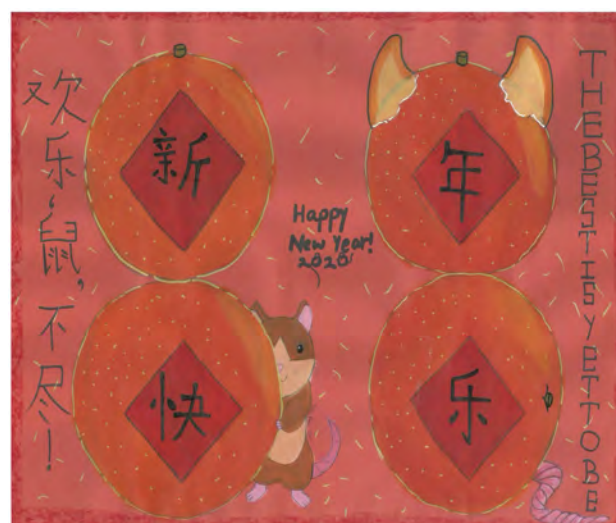 欢乐“鼠”不尽！
新
年
快
乐
Happy
New Year!
2020
THE BEST IS yET TO BE